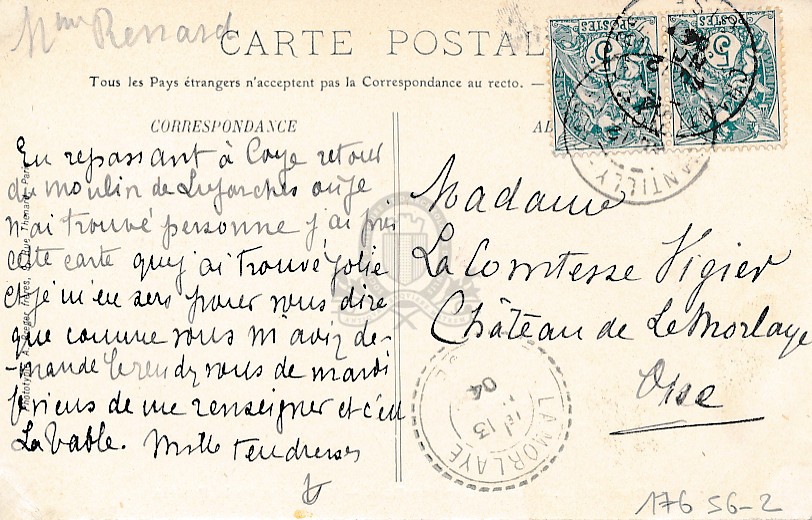 Mme Renard
CARTE POSTAL
Tous les Pays étrangers n'acceptent pas la Correspondance au recto. —
CORRESPONDANCE
En repassant à Coye retour
du moulin de Luzarches où je
n'ai trouvé personne j'ai pris
cette carte que j'ai trouvé jolie
et je m'en sers pour vous dire
que comme vous m'aviez de-
-mandé le rendez vous de mardi
je viens de me renseigner et c'est
La Vable. Mille tendresses
Madame
La Comtesse Vigier
Château de LeMorlaye
Oise
POSTES
POSTES
5
5
CHANTILLY
LAMORLAYE
13
04
OISE
Phototypie A. Breger frères, 9, Rue Thénard - Paris
176 56-2